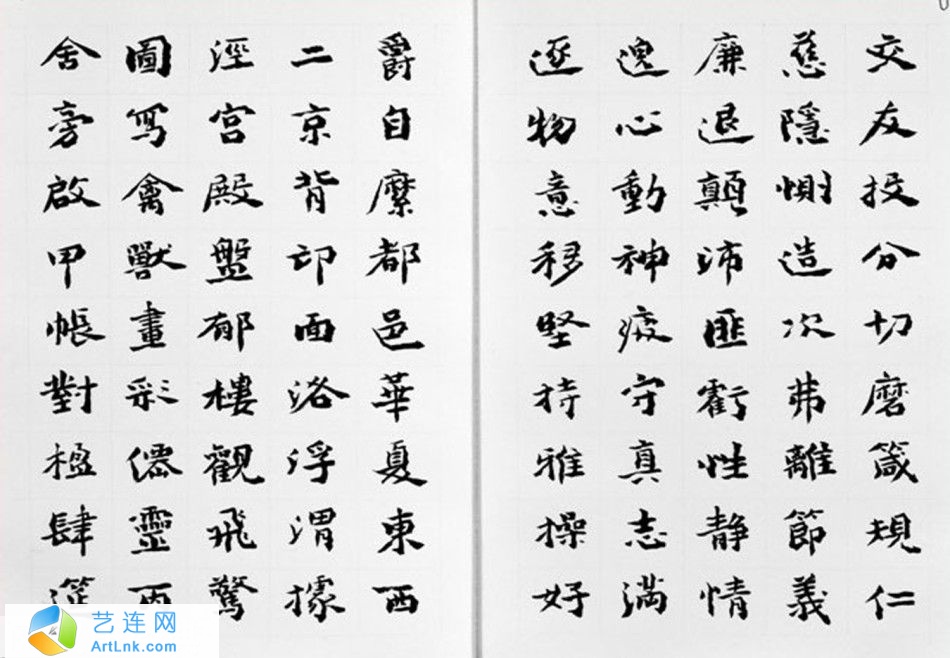 交友投分切磨箴規仁
慈隱惻造次弗離節義
廉退顛沛匪虧性静情
逸心動神疲守真志滿
逐物意移堅持雅操好
爵自縻都邑華夏東西
二京背邙面洛浮渭據
涇宫殿盤郁樓觀飛驚
圖冩禽獸畫彩僊靈丙
舍旁啟甲帳對楹肆筵
艺连网
ArtLnk.com